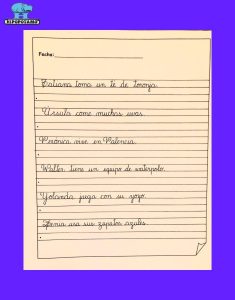 HIPOPOTAMO
Fecha:
Tatiana toma un té de toronja.
Úrsula come muchas uvas.
Verónica vive en Valencia.
Walter tiene un equipo de waterpolo.
Yolanda juega con su yoyo.
Zenia usa sus zapatos azules.